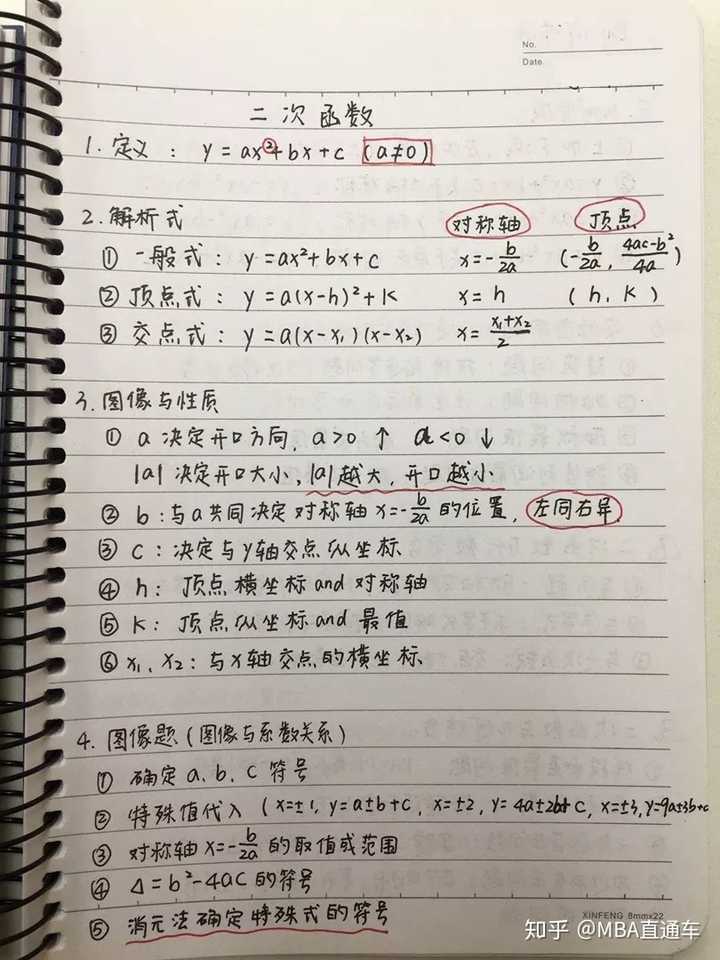 No.
Date.
二次函数
1. 定义: y=ax²+bx+c (a≠0)
2. 解析式 对称轴 顶点
① 一般式: y=ax²+bx+c x=-b/2a (-b/2a, 4ac-b²/4a)
② 顶点式: y=a(x-h)²+k x=h (h, k)
③ 交点式: y=a(x-x₁)(x-x₂) x=x₁+x₂/2
3. 图像与性质
① a 决定开口方向, a>0 ↑ a<0 ↓
|a| 决定开口大小, |a|越大, 开口越小
② b: 与a共同决定对称轴 x=-b/2a 的位置, 左同右异
③ c: 决定与y轴交点纵坐标
④ h: 顶点横坐标and对称轴
⑤ k: 顶点纵坐标and最值
⑥ x₁、x₂: 与x轴交点的横坐标
4. 图像题(图像与系数关系)
① 确定a、b、c符号
② 特殊值代入 (x=±1, y=a±b+c, x=±2, y=4a±2b+c, x=±3, y=9a±3b+c
③ 对称轴x=-b/2a的取值或范围
④ Δ=b²-4ac的符号
⑤ 消元法确定特殊式的符号
XINFENG 8mmx22
知乎 @MBA直通车